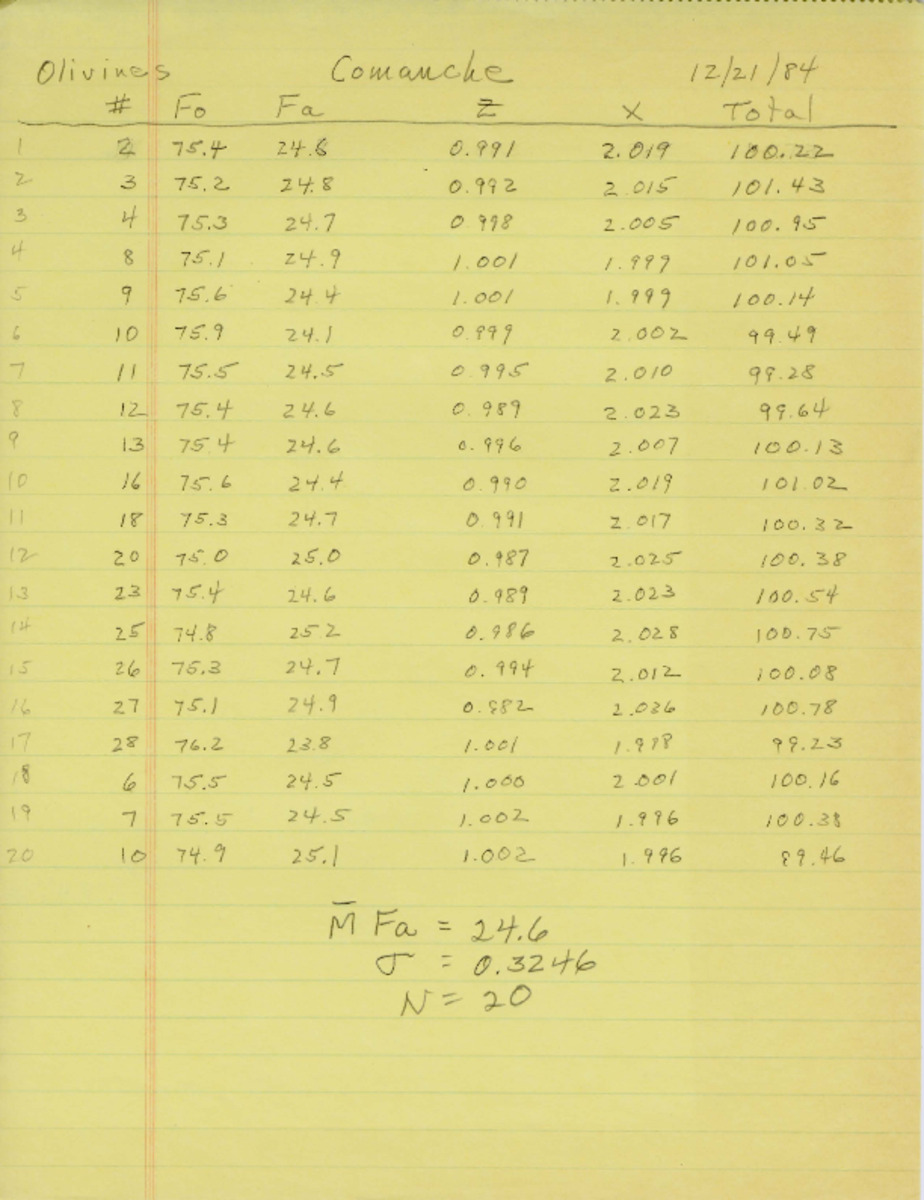 Olivines Comanche 12/21/84
# Fo Fa Z X Total
1 2 75.4 24.6 0.991 2.019 100.22
2 3 75.2 24.8 0.992 2.015 101.43
3 4 75.3 24.7 0.998 2.005 100.95
4 8 75.1 24.9 1.001 1.999 101.05
5 9 75.6 24.4 1.001 1.999 100.14
6 10 75.9 24.1 0.999 2.002 99.49
7 11 75.5 24.5 0.995 2.010 99.28
8 12 75.4 24.6 0.989 2.023 99.64
9 13 75.4 24.6 0.996 2.007 100.13
10 16 75.6 24.4 0.990 2.019 101.02
11 18 75.3 24.7 0.991 2.017 100.32
12 20 75.0 25.0 0.987 2.025 100.38
13 23 75.4 24.6 0.989 2.023 100.54
14 25 74.8 25 2 0.986 2.028 100.75
15 26 75.3 24.7 0.994 2.012 100.08
16 27 75.1 24.9 0.982 2.036 100.78
17 28 76.2 23.8 1.001 1.998 99.23
18 6 75.5 24.5 1.000 2.001 100.16
19 7 75.5 24.5 1.002 1.996 100.38
20 10 74.9 25.1 1.002 1.996 89.46
M̄ Fa = 24.6
σ = 0.3246
N = 20